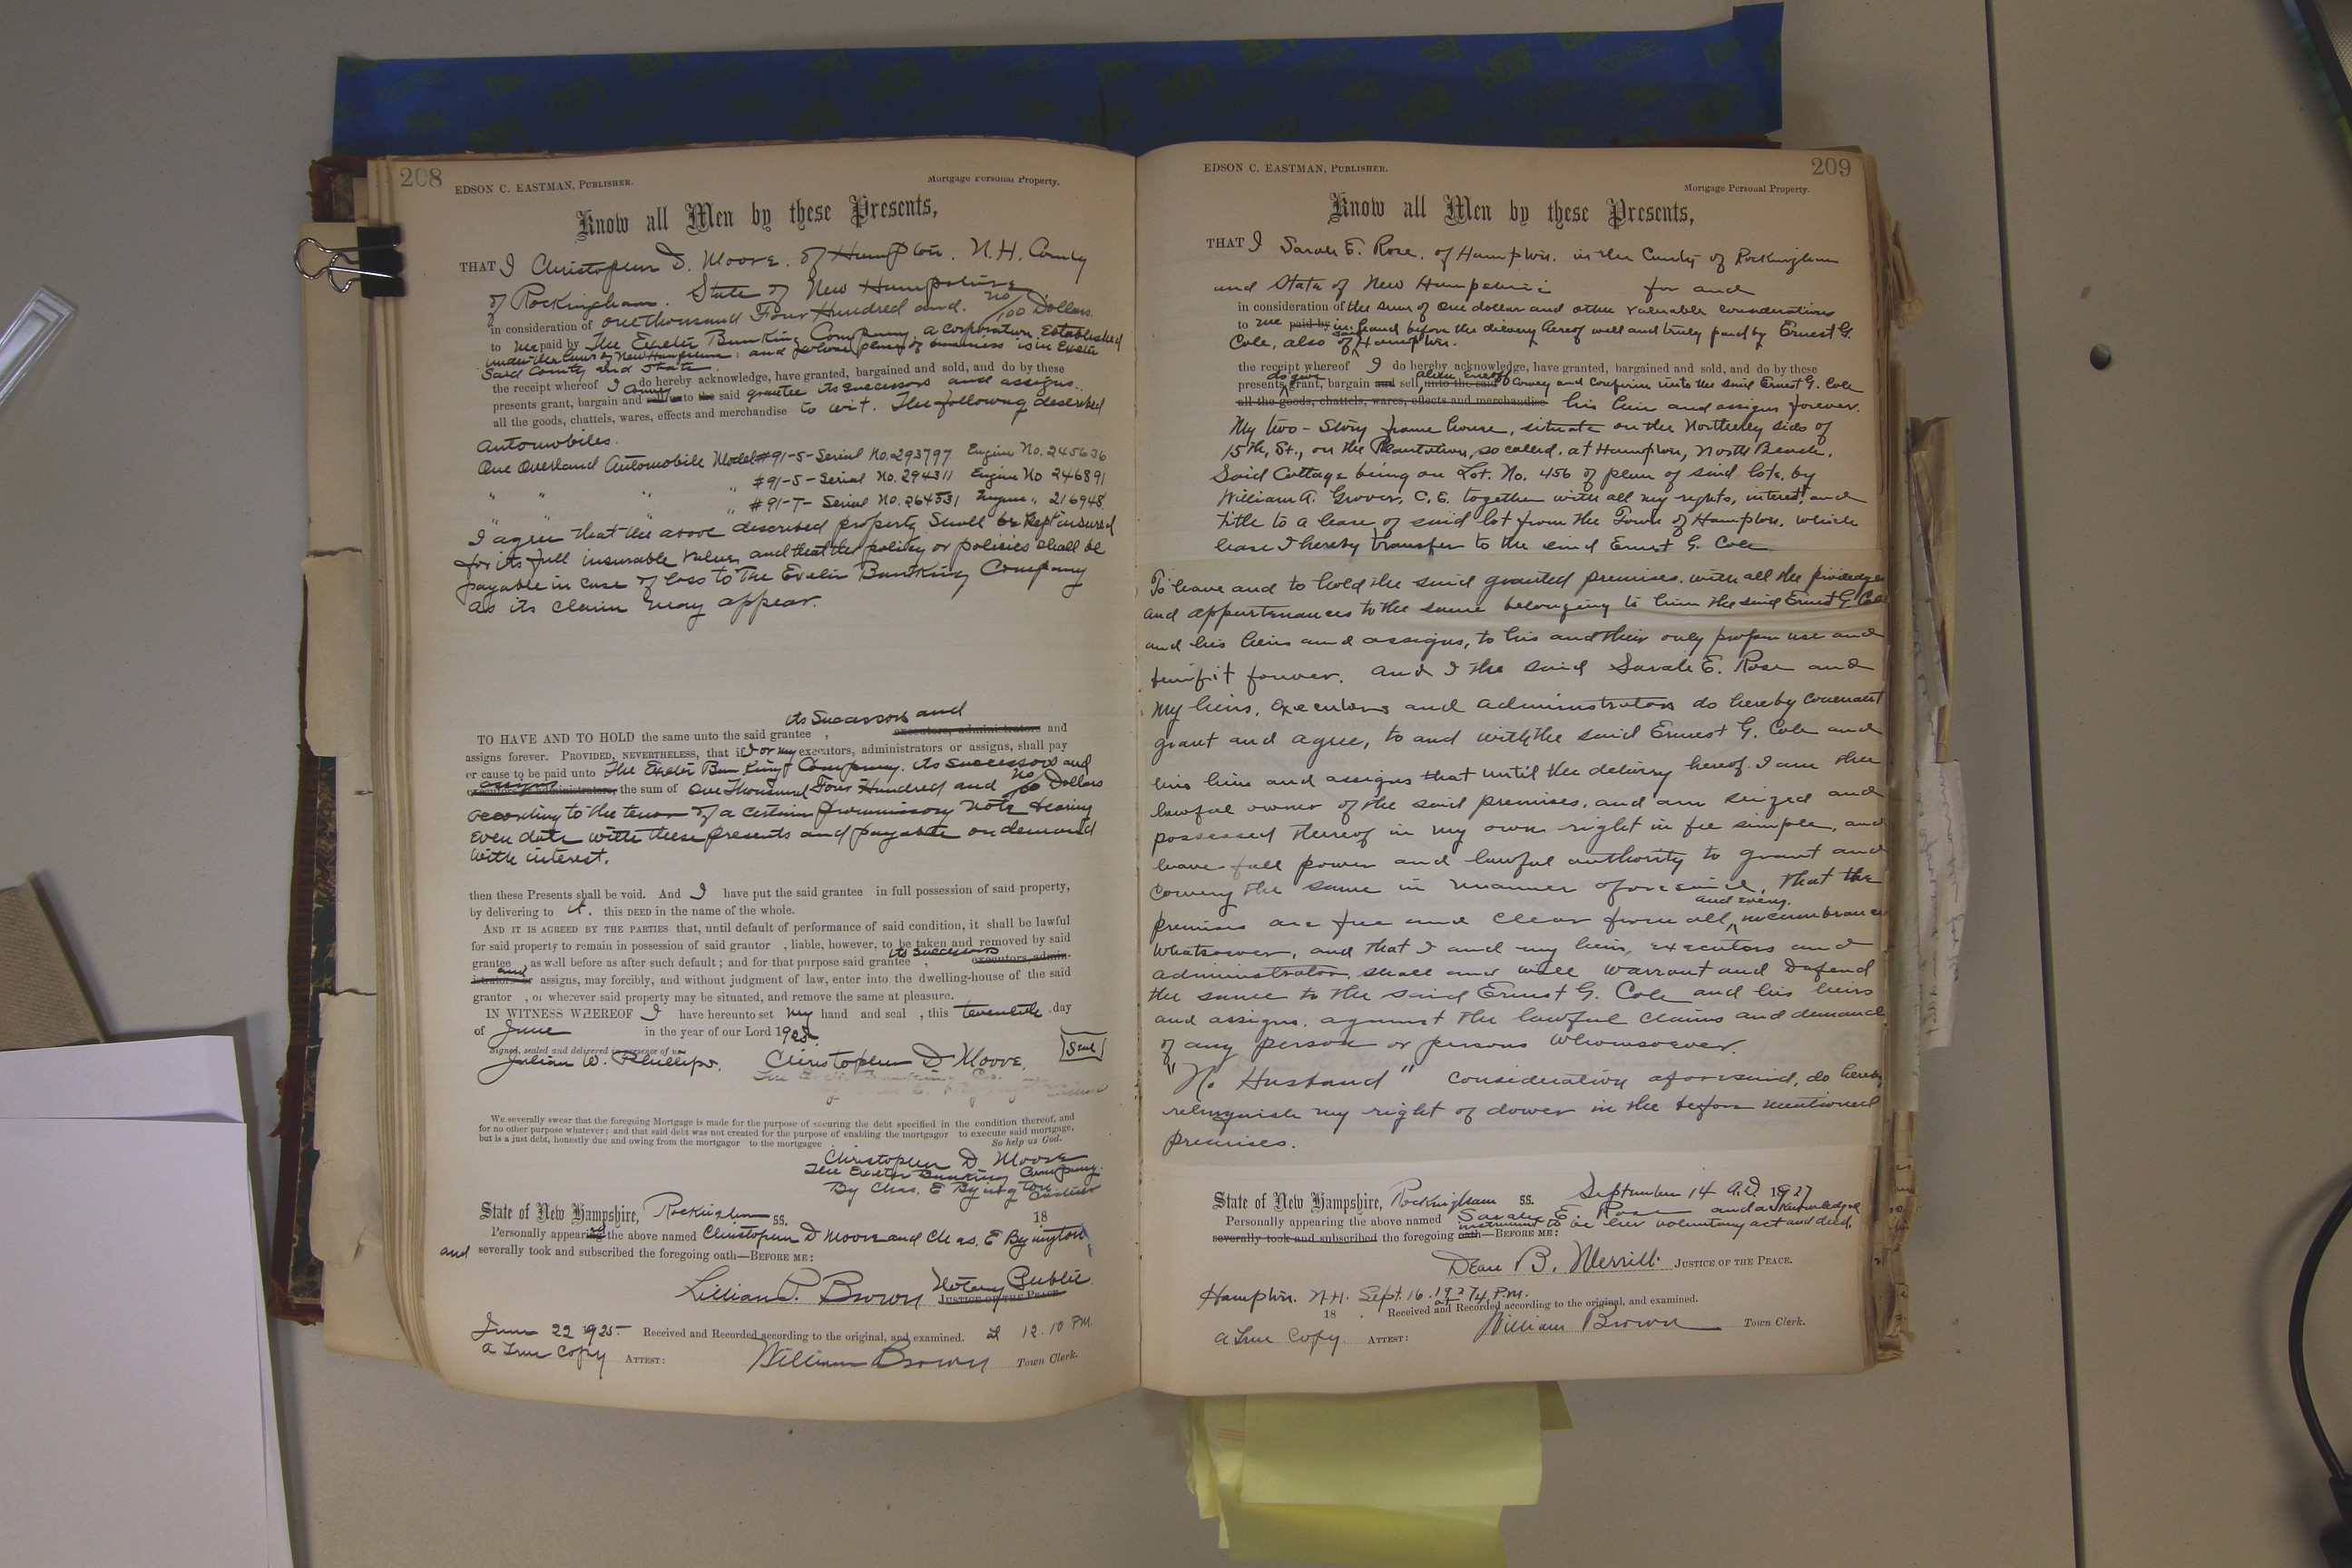 208
EDSON C. EASTMAN, PUBLISHER.
Mortgage Personal Property.
Know all Men by these Presents,
THAT I Christopher D. Moore, of Hampton, N.H. County
of Rockingham. State of New Hampshire
in consideration of one thousand Four Hundred and no/100 Dollars.
to me paid by The Exeter Banking Company, a corporation Established
under the laws of New Hampshire, and whose place of business is in Exeter
Said County and State.
the receipt whereof I do hereby acknowledge, have granted, bargained and sold, and do by these
presents grant, bargain and sell unto the said grantee its successors and assigns.
all the goods, chattels, wares, effects and merchandise to wit. The following described
Automobiles.
One Overland Automobile Model #91-5-Serial No. 293797 Engine No. 245636
" " " " #91-5-Serial No. 294311 Engine No 246891
" " " " #91-T-Serial No. 264531 Engine " 216948
I agree that the above described property Shall be Kept insured
for its full insurable value, and that the policy or policies shall be
payable in case of loss to The Exeter Banking Company
as its claim may appear.
its Successors and
TO HAVE AND TO HOLD the same unto the said grantee , executors, administrators and
assigns forever. PROVIDED, NEVERTHELESS, that if I or my executors, administrators or assigns, shall pay
or cause to be paid unto The Exeter Banking Company. its successors and
assigns executors, administrators, the sum of One Thousand Four Hundred and no/00 Dollars
according to the tenor of a certain promissory note bearing
even date with these presents and payable on demand
with interest.
then these Presents shall be void. And I have put the said grantee in full possession of said property,
by delivering to it. this DEED in the name of the whole.
AND IT IS AGREED BY THE PARTIES that, until default of performance of said condition, it shall be lawful
for said property to remain in possession of said grantor , liable, however, to be taken and removed by said
grantee , as well before as after such default; and for that purpose said grantee , its successors executors, admin-
istrators or and assigns, may forcibly, and without judgment of law, enter into the dwelling-house of the said
grantor , or wherever said property may be situated, and remove the same at pleasure.
IN WITNESS WHEREOF I have hereunto set my hand and seal , this day
of June in the year of our Lord 1925
Signed, sealed and delivered in presence of us
Julian W. Phillips. Christopher D Moore. Seal
We severally swear that the foregoing Mortgage is made for the purpose of securing the debt specified in the condition thereof, and
for no other purpose whatever; and that said debt was not created for the purpose of enabling the mortgagor to execute said mortgage,
but is a just debt, honestly due and owing from the mortgagor to the mortgagee So help us God.
Christopher D Moore
The Exeter Banking Company.
By Chas. E Byington Cashier
State of New Hampshire, Rockingham ss. 18
Personally appearing the above named Christopher D Moore and Chas. E Byington
and severally took and subscribed the foregoing oath—BEFORE ME:
Lillian P. Brown Notary Public
JUSTICE OF THE PEACE.
June 22 1925- Received and Recorded according to the original, and examined. at 12.10 P.M.
a True Copy ATTEST: William Brown Town Clerk.
EDSON C. EASTMAN, PUBLISHER.
209
Mortgage Personal Property.
Know all Men by these Presents,
THAT I Sarah E. Rose, of Hampton. in the County of Rockingham
and State of New Hampshire for and
in consideration of the sum of One dollar and other valuable considerations
to me paid by in hand before the delivery hereof well and truly paid by Ernest G.
Cole, also of said Hampton.
the receipt whereof I do hereby acknowledge, have granted, bargained and sold, and do by these
presents do give grant, bargain and sell, alien, enfeoff unto the said convey and confirm unto the said Ernest G. Cole
all the goods, chattels, wares, effects and merchandise his heirs and assigns forever.
My two-Story frame house, situate on the Northerly side of
15th, St., on the Plantation, so called, at Hampton, North Beach.
Said Cottage being on Lot. No. 456 of plan of said lots, by
William A. Grover, C.E. together with all my rights, interest, and
title to a lease of said lot from the Town of Hampton, which
lease I hereby transfer to the said Ernest G. Cole
To have and to hold the said granted premises, with all the privileges
and appurtenances to the same belonging to him the said Ernest G. Cole
and his heirs and assigns, to his and their only proper use and
benifit forever. And I the said Sarah E. Rose and
my heirs, executors and administrators do hereby covenant
grant and agree, to and with the said Ernest G. Cole and
his heirs and assigns that until the delivery hereof I am the
lawful owner of the said premises, and am seized and
possessed thereof in my own right in fee simple, and
have full power and lawful authority to grant and
convey the same in manner aforesaid, that the
premises are free and clear from all and every incumbrance
whatsoever, and that I and my heirs, executors and
administrators, shall and will warrant and Defend
the same to the said Ernest G. Cole and his heirs
and assigns. against the lawful claims and demands
of any person or persons whomsoever.
"No Husband" consideration aforesaid, do hereby
relinquish my right of dower in the before mentioned
premises.
State of New Hampshire, Rockingham ss. September 14 A.D. 1927
Personally appearing the above named Sarah E. Rose and acknowledged
instrument to be her voluntary act and deed.
severally took and subscribed the foregoing oath—BEFORE ME:
Dean B. Merrill. JUSTICE OF THE PEACE.
Hampton. N.H. Sept. 16. 1927 at 4 P.M.
18 . Received and Recorded according to the original, and examined.
a True Copy ATTEST: William Brown Town Clerk.